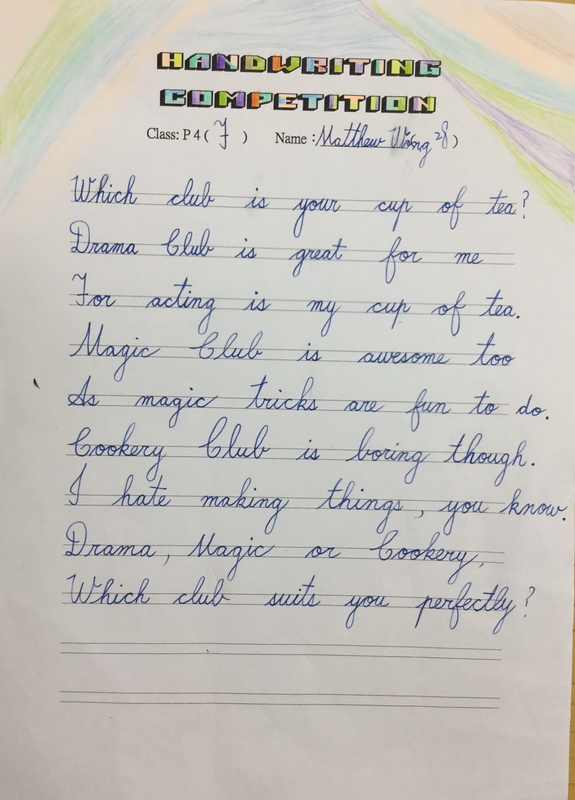 HANDWRITING
COMPETITION
Class: P 4 ( J ) Name : Matthew Wong 28 )
Which club is your cup of tea?
Drama Club is great for me
For acting is my cup of tea.
Magic Club is awesome too
As magic tricks are fun to do.
Cookery Club is boring though.
I hate making things, you know.
Drama, Magic or Cookery,
Which club suits you perfectly?